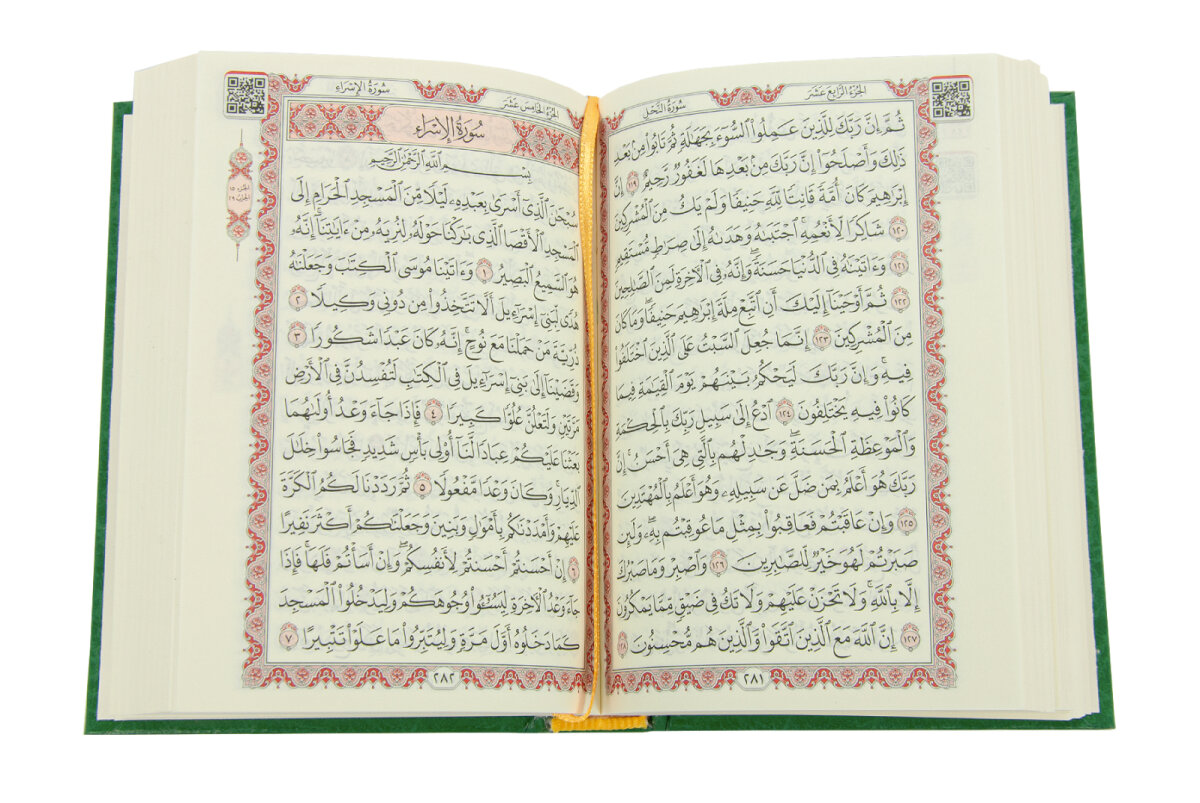 سُورَةُ النَّحْلِ
الجُزْءُ الرَّابِعَ عَشَرَ
ثُمَّ إِنَّ رَبَّكَ لِلَّذِينَ عَمِلُوا۟ ٱلسُّوٓءَ بِجَهَٰلَةٍ ثُمَّ تَابُوا۟ مِنۢ بَعْدِ
ذَٰلِكَ وَأَصْلَحُوٓا۟ إِنَّ رَبَّكَ مِنۢ بَعْدِهَا لَغَفُورٌ رَّحِيمٌ ١١٩ إِنَّ
إِبْرَٰهِيمَ كَانَ أُمَّةً قَانِتًا لِّلَّهِ حَنِيفًا وَلَمْ يَكُ مِنَ ٱلْمُشْرِكِينَ
١٢٠ شَاكِرًا لِّأَنْعُمِهِ ۚ ٱجْتَبَىٰهُ وَهَدَىٰهُ إِلَىٰ صِرَٰطٍ مُّسْتَقِيمٍ
١٢١ وَءَاتَيْنَٰهُ فِى ٱلدُّنْيَا حَسَنَةً ۖ وَإِنَّهُۥ فِى ٱلْءَاخِرَةِ لَمِنَ ٱلصَّٰلِحِينَ
١٢٢ ثُمَّ أَوْحَيْنَآ إِلَيْكَ أَنِ ٱتَّبِعْ مِلَّةَ إِبْرَٰهِيمَ حَنِيفًا ۖ وَمَا كَانَ
مِنَ ٱلْمُشْرِكِينَ ١٢٣ إِنَّمَا جُعِلَ ٱلسَّبْتُ عَلَى ٱلَّذِينَ ٱخْتَلَفُوا۟
فِيهِ ۚ وَإِنَّ رَبَّكَ لَيَحْكُمُ بَيْنَهُمْ يَوْمَ ٱلْقِيَٰمَةِ فِيمَا
كَانُوا۟ فِيهِ يَخْتَلِفُونَ ١٢٤ ٱدْعُ إِلَىٰ سَبِيلِ رَبِّكَ بِٱلْحِكْمَةِ
وَٱلْمَوْعِظَةِ ٱلْحَسَنَةِ ۖ وَجَٰدِلْهُم بِٱلَّتِى هِىَ أَحْسَنُ ۚ إِنَّ
رَبَّكَ هُوَ أَعْلَمُ بِمَن ضَلَّ عَن سَبِيلِهِۦ ۖ وَهُوَ أَعْلَمُ بِٱلْمُهْتَدِينَ
١٢٥ وَإِنْ عَاقَبْتُمْ فَعَاقِبُوا۟ بِمِثْلِ مَا عُوقِبْتُم بِهِۦ ۖ وَلَئِن
صَبَرْتُمْ لَهُوَ خَيْرٌ لِّلصَّٰبِرِينَ ١٢٦ وَٱصْبِرْ وَمَا صَبْرُكَ
إِلَّا بِٱللَّهِ ۚ وَلَا تَحْزَنْ عَلَيْهِمْ وَلَا تَكُ فِى ضَيْقٍ مِّمَّا يَمْكُرُونَ
١٢٧ إِنَّ ٱللَّهَ مَعَ ٱلَّذِينَ ٱتَّقَوا۟ وَّٱلَّذِينَ هُم مُّحْسِنُونَ ١٢٨
٢٨١
الجُزْءُ الخَامِسَ عَشَرَ
سُورَةُ الإِسْرَاءِ
سُورَةُ الإِسْرَاءِ
بِسْمِ ٱللَّهِ ٱلرَّحْمَٰنِ ٱلرَّحِيمِ
سُبْحَٰنَ ٱلَّذِىٓ أَسْرَىٰ بِعَبْدِهِۦ لَيْلًا مِّنَ ٱلْمَسْجِدِ ٱلْحَرَامِ إِلَى
ٱلْمَسْجِدِ ٱلْأَقْصَا ٱلَّذِى بَٰرَكْنَا حَوْلَهُۥ لِنُرِيَهُۥ مِنْ ءَايَٰتِنَآ ۚ إِنَّهُۥ
هُوَ ٱلسَّمِيعُ ٱلْبَصِيرُ ١ وَءَاتَيْنَا مُوسَى ٱلْكِتَٰبَ وَجَعَلْنَٰهُ
هُدًى لِّبَنِىٓ إِسْرَٰٓءِيلَ أَلَّا تَتَّخِذُوا۟ مِن دُونِى وَكِيلًا ٢
ذُرِّيَّةَ مَنْ حَمَلْنَا مَعَ نُوحٍ ۚ إِنَّهُۥ كَانَ عَبْدًا شَكُورًا ٣
وَقَضَيْنَآ إِلَىٰ بَنِىٓ إِسْرَٰٓءِيلَ فِى ٱلْكِتَٰبِ لَتُفْسِدُنَّ فِى ٱلْأَرْضِ
مَرَّتَيْنِ وَلَتَعْلُنَّ عُلُوًّا كَبِيرًا ٤ فَإِذَا جَآءَ وَعْدُ أُولَىٰهُمَا
بَعَثْنَا عَلَيْكُمْ عِبَادًا لَّنَآ أُو۟لِى بَأْسٍ شَدِيدٍ فَجَاسُوا۟ خِلَٰلَ
ٱلدِّيَارِ ۚ وَكَانَ وَعْدًا مَّفْعُولًا ٥ ثُمَّ رَدَدْنَا لَكُمُ ٱلْكَرَّةَ
عَلَيْهِمْ وَأَمْدَدْنَٰكُم بِأَمْوَٰلٍ وَبَنِينَ وَجَعَلْنَٰكُمْ أَكْثَرَ نَفِيرًا
٦ إِنْ أَحْسَنتُمْ أَحْسَنتُمْ لِأَنفُسِكُمْ ۖ وَإِنْ أَسَأْتُمْ فَلَهَا ۚ فَإِذَا
جَآءَ وَعْدُ ٱلْءَاخِرَةِ لِيَسُۥٓـُٔوا۟ وُجُوهَكُمْ وَلِيَدْخُلُوا۟ ٱلْمَسْجِدَ
كَمَا دَخَلُوهُ أَوَّلَ مَرَّةٍ وَلِيُتَبِّرُوا۟ مَا عَلَوْا۟ تَتْبِيرًا ٧
٢٨٢
الجزء ١٥
الحزب ٢٩